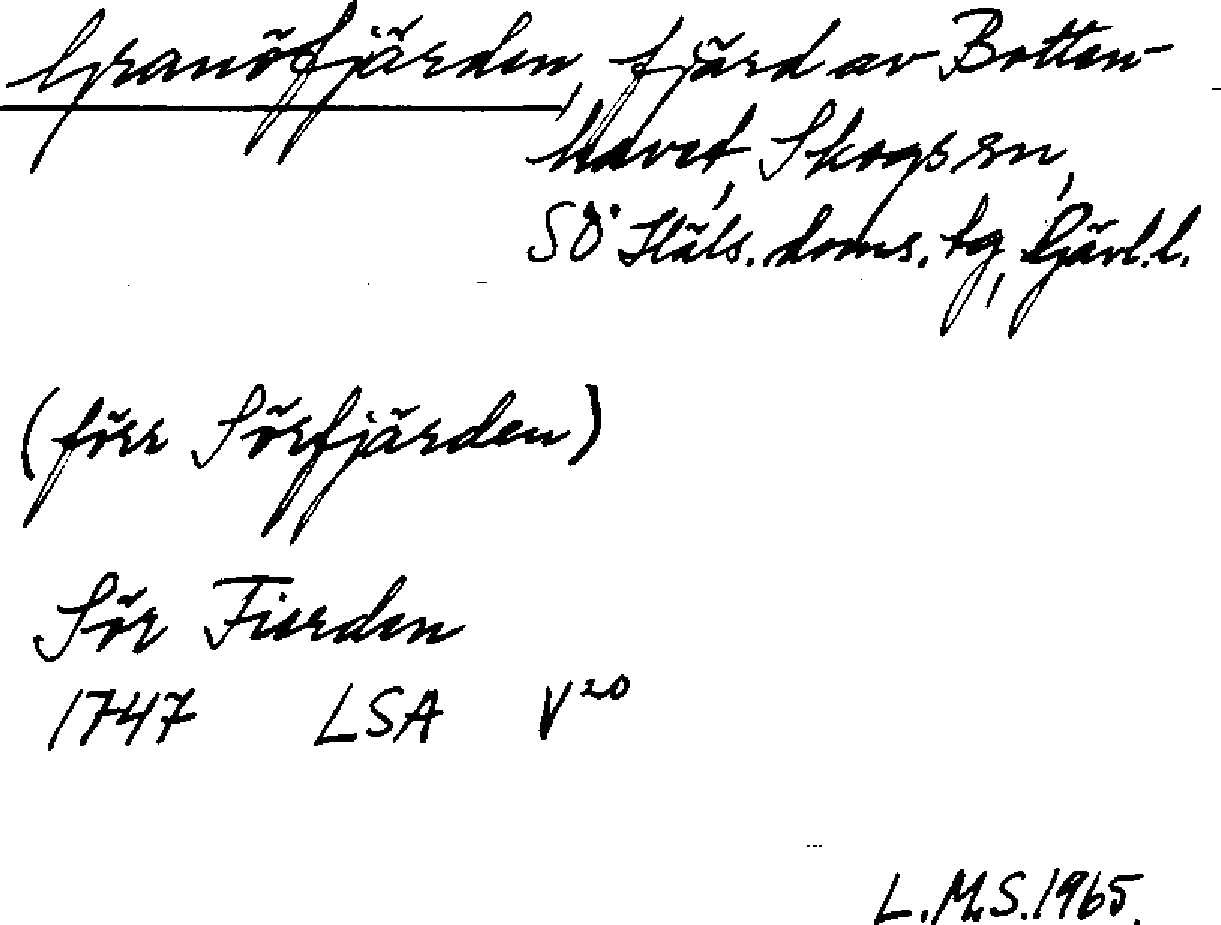 Granöfjärden, fjärd av Botten-
havet, Skogs sn,
SÖ Häls. doms. tg, Gävl.l.
(förr Sörfjärden)
Sör Fierden
1747 LSA V20
L.M.S. 1965.